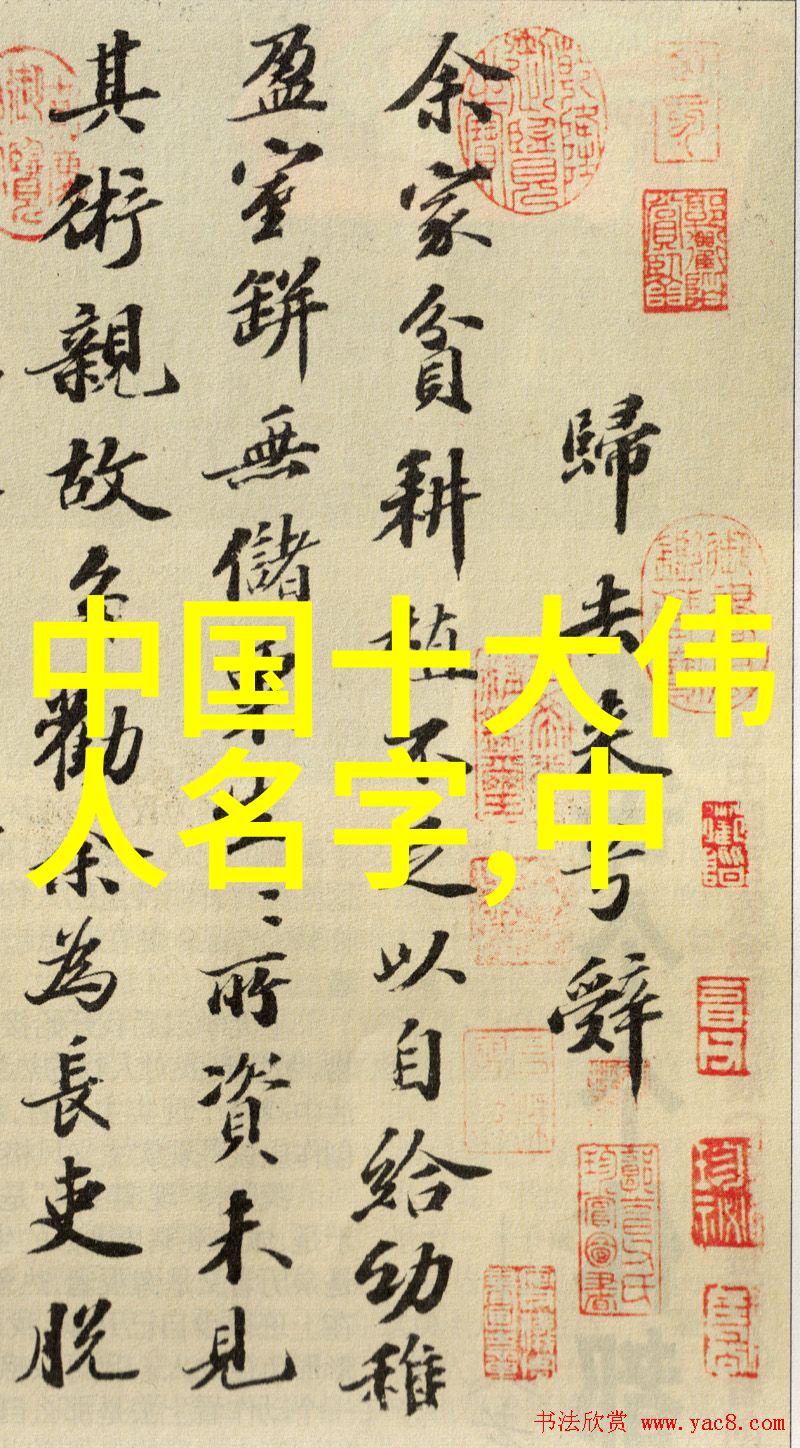 歸去来兮辭
余家貧耕植不足以自給幼稚
盈室缾無儲粟生〻所資未見
其術親故多勸余為長吏脱
中国十大伟
人名字,中
书法欣赏 www.yac8.com